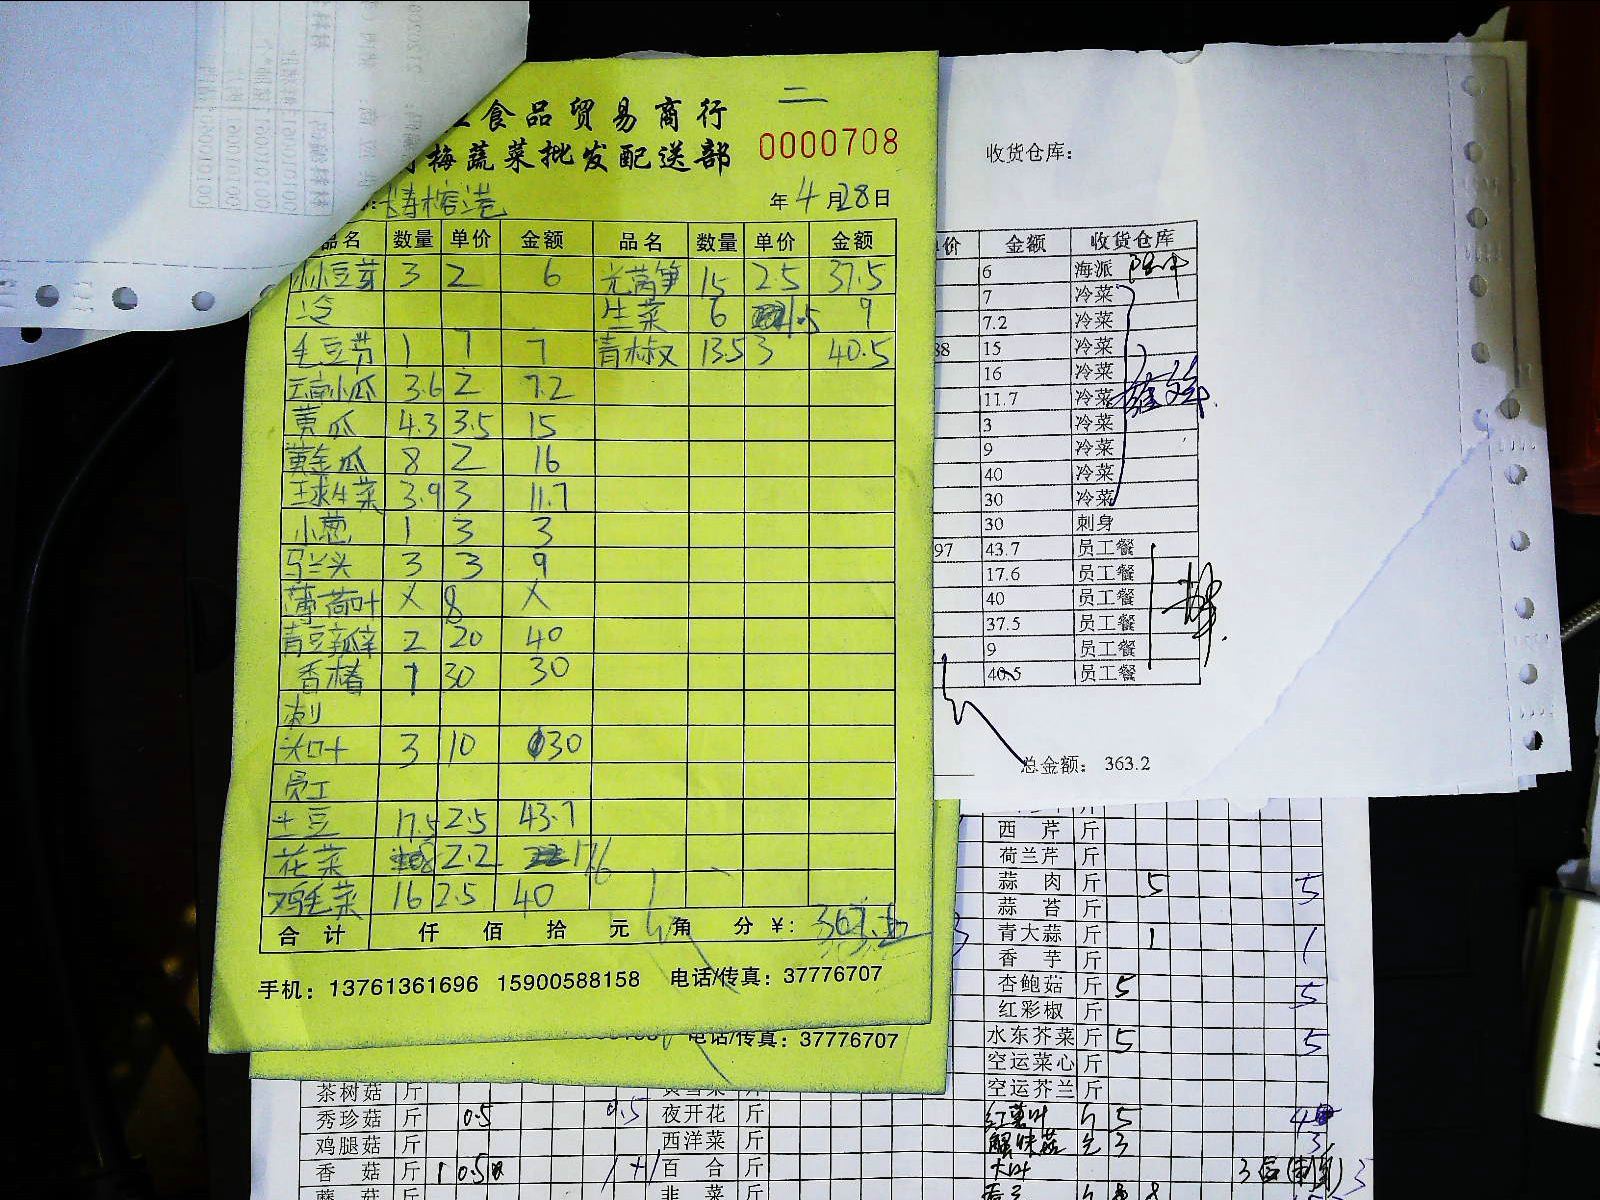 食品贸易商行
二
梅蔬菜批发配送部
0000708
年4月28日
品名 数量 单价 金额 品名 数量 单价 金额
小豆芽 3 2 6 光莴笋 15 2.5 37.5
冷 生菜 6 1.5 9
毛豆节 1 7 7 青椒 13.5 3 40.5
云南小瓜 3.6 2 7.2
黄瓜 4.3 3.5 15
黄金瓜 8 2 16
球生菜 3.9 3 11.7
小葱 1 3 3
马兰头 3 3 9
薄荷叶 X 8 X
青豆瓣 2 20 40
香椿 1 30 30
刺
3 10 30
员工
土豆 17.5 2.5 43.7
花菜 8 2.2 17.6
鸡毛菜 16 2.5 40
合计 仟 佰 拾 元 角 分 ¥:
手机：13761361696 15900588158 电话/传真：37776707
电话/传真：37776707
收货仓库：
价 金额 收货仓库
6 海派
7 冷菜
7.2 冷菜
88 15 冷菜
16 冷菜
11.7 冷菜
3 冷菜
9 冷菜
40 冷菜
30 冷菜
30 刺身
97 43.7 员工餐
17.6 员工餐
40 员工餐
37.5 员工餐
9 员工餐
40.5 员工餐
总金额： 363.2
西芹 斤
荷兰芹 斤
蒜肉 斤 5 5
蒜苔 斤
青大蒜 斤 1 1
香芋 斤
杏鲍菇 斤 5 5
红彩椒 斤
水东芥菜 斤 5 5
空运菜心 斤
空运芥兰 斤
茶树菇 斤
秀珍菇 斤 0.5 0.5 夜开花 斤
鸡腿菇 斤 西洋菜 斤
香菇 斤 百合 斤
韭菜 斤